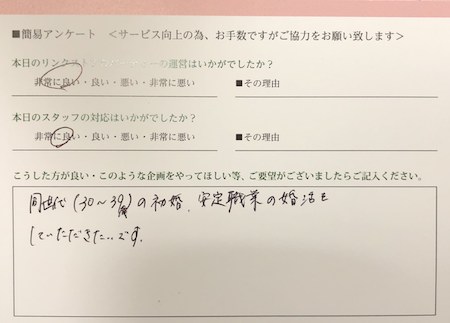 ■簡易アンケート <サービス向上の為、お手数ですがご協力をお願い致します>
本日のリンクスト の運営はいかがでしたか？
非常に良い・良い・悪い・非常に悪い ■その理由
本日のスタッフの対応はいかがでしたか？
非常に良い・良い・悪い・非常に悪い ■その理由
こうした方が良い・このような企画をやってほしい等、ご要望がございましたらご記入ください。
同世代(30～39歳)の初婚、安定職業の婚活を
していただきたいです。